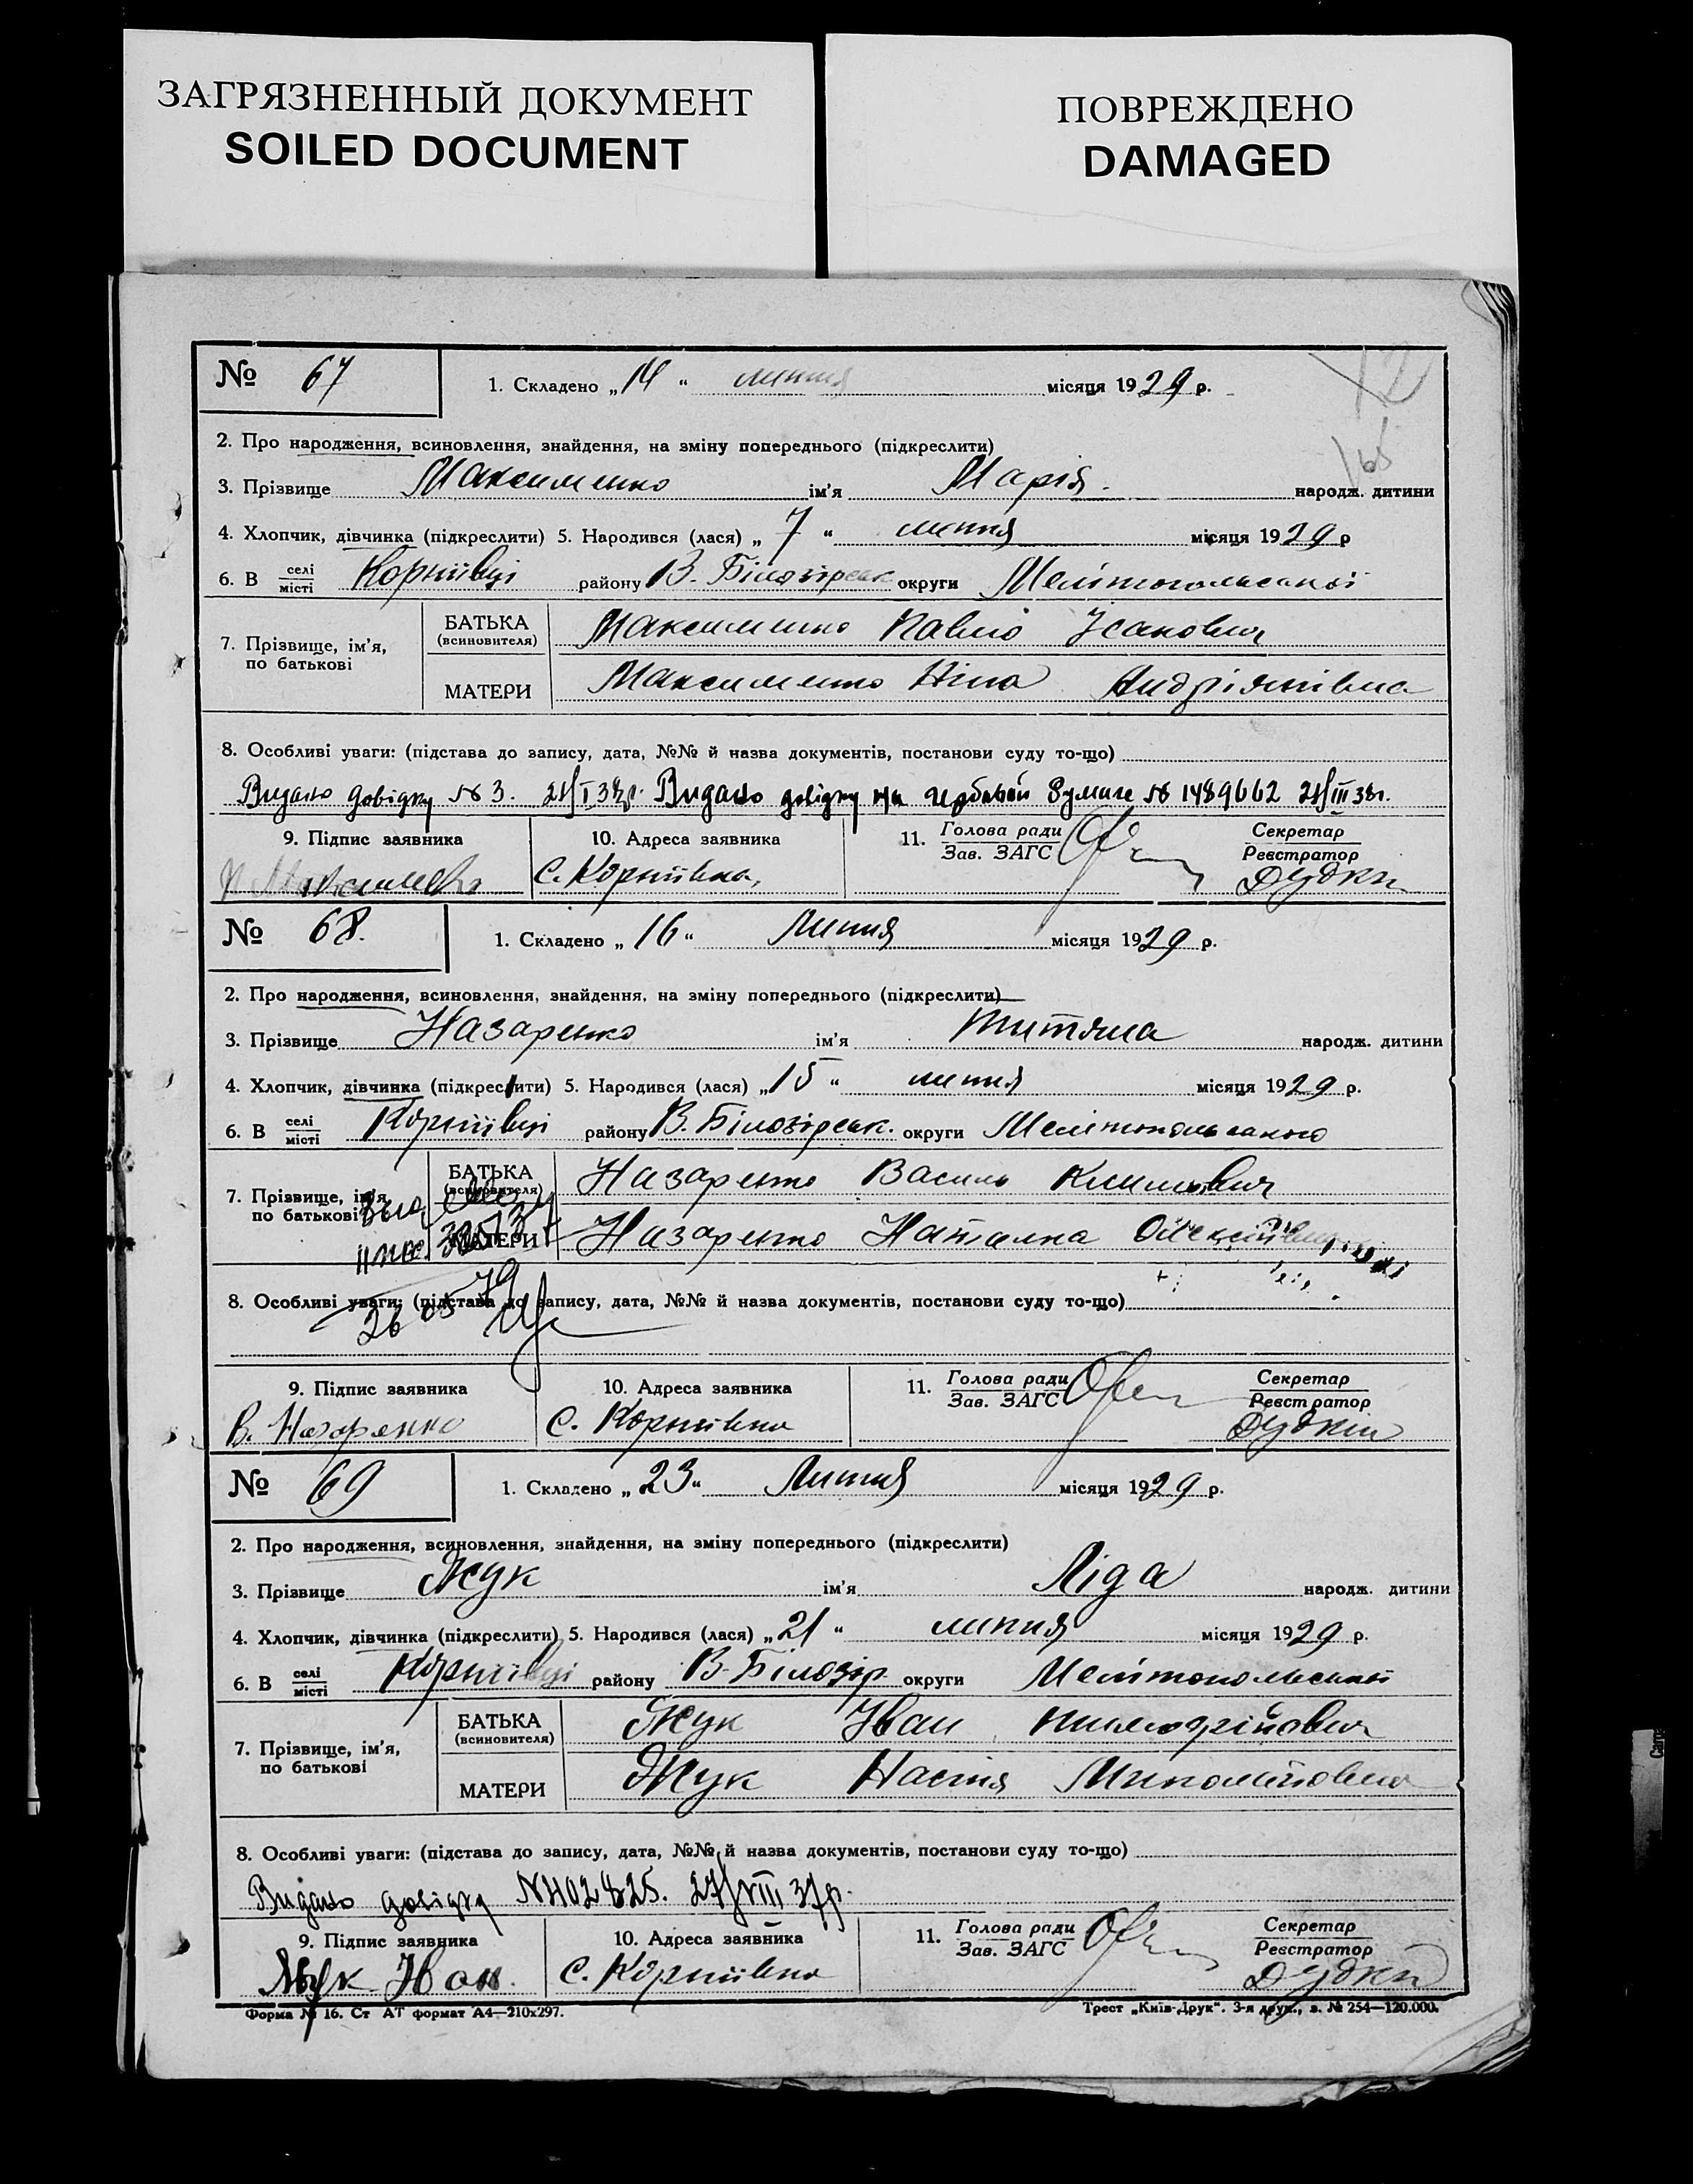 ЗАГРЯЗНЕННЫЙ ДОКУМЕНТ
SOILED DOCUMENT
ПОВРЕЖДЕНО
DAMAGED
№ 67 1. Складено „14“ липня місяця 1929 р.
2. Про народження, всиновлення, знайдення, на зміну попереднього (підкреслити)
3. Прізвище Максименко ім'я Марія. народж. дитини
4. Хлопчик, дівчинка (підкреслити) 5. Народився (лася) „7“ липня місяця 1929 р
6. В селі/місті Корніївці району В. Білозірськ округи Мелітопольської
7. Прізвище, ім'я, по батькові
БАТЬКА (всиновителя) Максименко Павло
МАТЕРИ Максименко Ніна Андріянівна
8. Особливі уваги: (підстава до запису, дата, №№ й назва документів, постанови суду то-що)
Видано довідку № 3. 21/I 38р. Видано довідку на гербовой бумаге № 1489662 21/III 38г.
9. Підпис заявника 10. Адреса заявника 11. Голова ради Секретар
Зав. ЗАГС Реєстратор
С. Корніївка, Дудкін
№ 68. 1. Складено „16“ Липня місяця 1929 р.
2. Про народження, всиновлення, знайдення, на зміну попереднього (підкреслити)
3. Прізвище Назаренко ім'я Титяна народж. дитини
4. Хлопчик, дівчинка (підкреслити) 5. Народився (лася) „15“ липня місяця 1929 р.
6. В селі/місті Корніївці району В. Білозірськ. округи Мелітопольського
7. Прізвище, ім'я, по батькові
БАТЬКА (всиновителя) Назаренко Василь Климович
МАТЕРИ Назаренко Наталка Олексіївна
8. Особливі уваги: (підстава до запису, дата, №№ й назва документів, постанови суду то-що)
26 03 79
9. Підпис заявника 10. Адреса заявника 11. Голова ради Секретар
Зав. ЗАГС Реєстратор
В. Назаренко С. Корніївка Дудкін
№ 69 1. Складено „23“ Липня місяця 1929 р.
2. Про народження, всиновлення, знайдення, на зміну попереднього (підкреслити)
3. Прізвище Жук ім'я Ліда народж. дитини
4. Хлопчик, дівчинка (підкреслити) 5. Народився (лася) „21“ липня місяця 1929 р.
6. В селі/місті Корніївці району В-Білозір округи Мелітопольської
7. Прізвище, ім'я, по батькові
БАТЬКА (всиновителя) Жук Іван
МАТЕРИ Жук Настя Миколаївна
8. Особливі уваги: (підстава до запису, дата, №№ й назва документів, постанови суду то-що)
Видано довідку 27/VIII 37р.
9. Підпис заявника 10. Адреса заявника 11. Голова ради Секретар
Зав. ЗАГС Реєстратор
Жук Іван. С. Корніївка Дудкін
Форма № 16. Ст АТ формат А4—210х297. Трест „Київ-Друк“. 3-я друк., з. № 254—120.000.